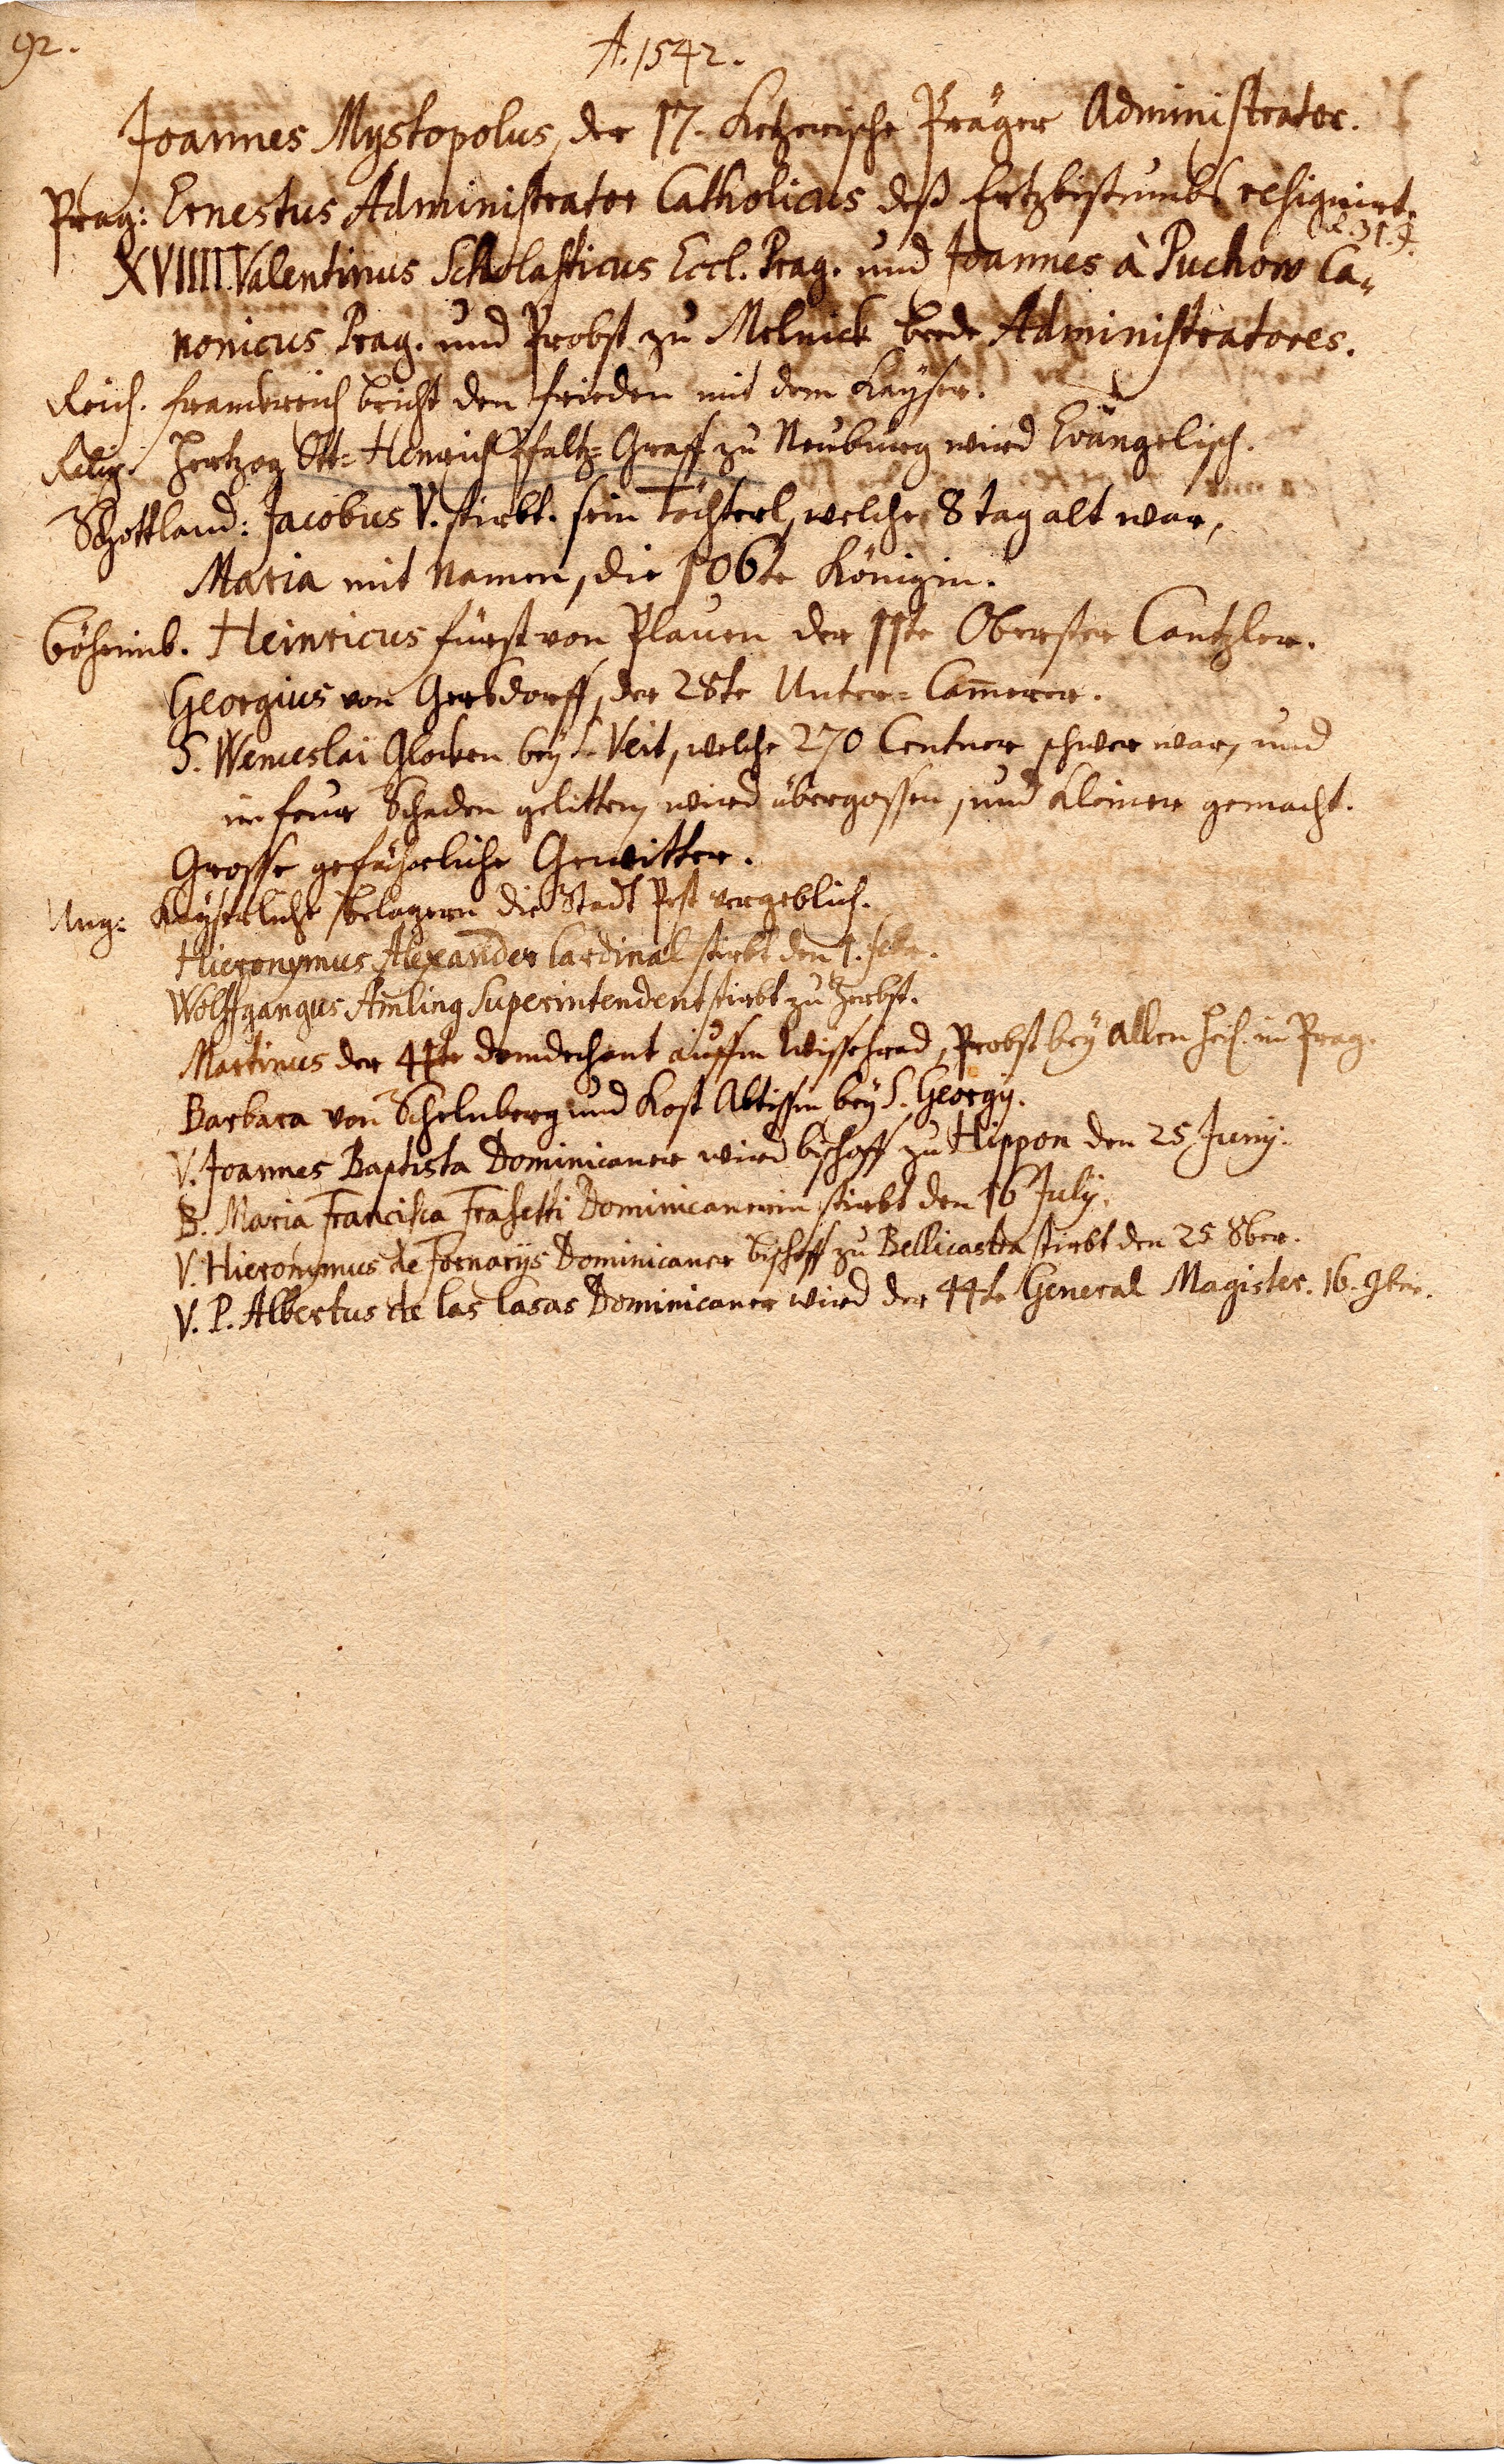 92.
A. 1542.
Joannes Mystopolus, der 17. Ketzerische Präger Administrator.
Prag: Ernestus Administrator Catholicus deß Ertzbistumbs resignirt.
XVIIII. Valentinus Scholasticus Eccl. Prag. und Joannes à Puchow Ca-
nonicus Prag. und Probst zu Melnick beede Administratores.
Reich. Franckreich bricht den Frieden mit dem Kayser.
Relig. Hertzog Ott-Henrich Pfaltz-Graff zu Neuburg wird Evangelisch.
Schottland: Jacobus V. stirbt. sein Töchterl, welche 8 Tag alt war,
Maria mit Namen, die 106te Königin.
Böheimb. Heinricus Fürst von Plauen der 11te Oberster Cantzler.
Georgius von Gersdorff, der 28te Unter-Cammerer.
S. Wenceslai Glocken bey S. Veit, welche 270 Centner schwer war, und
im Feuer Schaden gelitten, wird übergossen, und kleiner gemacht.
Grosse gefährliche Gewitter.
Ung: Kayserliche belagern die Stadt Pest vergeblich.
Hieronymus Alexander Cardinal stirbt den 1. Febr.
Wolffgangus Amling Superintendent stirbt zu Zerbst.
Martinus der 44te Domdechant auffm Wissehrad, Probst bey Allen Heil. in Prag.
Barbara von Schelnberg und Kost Abtissin bey S. Georgy.
V. Joannes Baptista Dominicaner wird Bischoff zu Hippon den 25 Juny.
B. Maria Francisca Frasetti Dominicanerin stirbt den 16 July.
V. Hieronymus de Fornarys Dominicaner Bischoff zu Bellicastra stirbt den 25 8ber.
V. P. Albertus de las Casas Dominicaner wird der 44te General Magister. 16. 9ber.